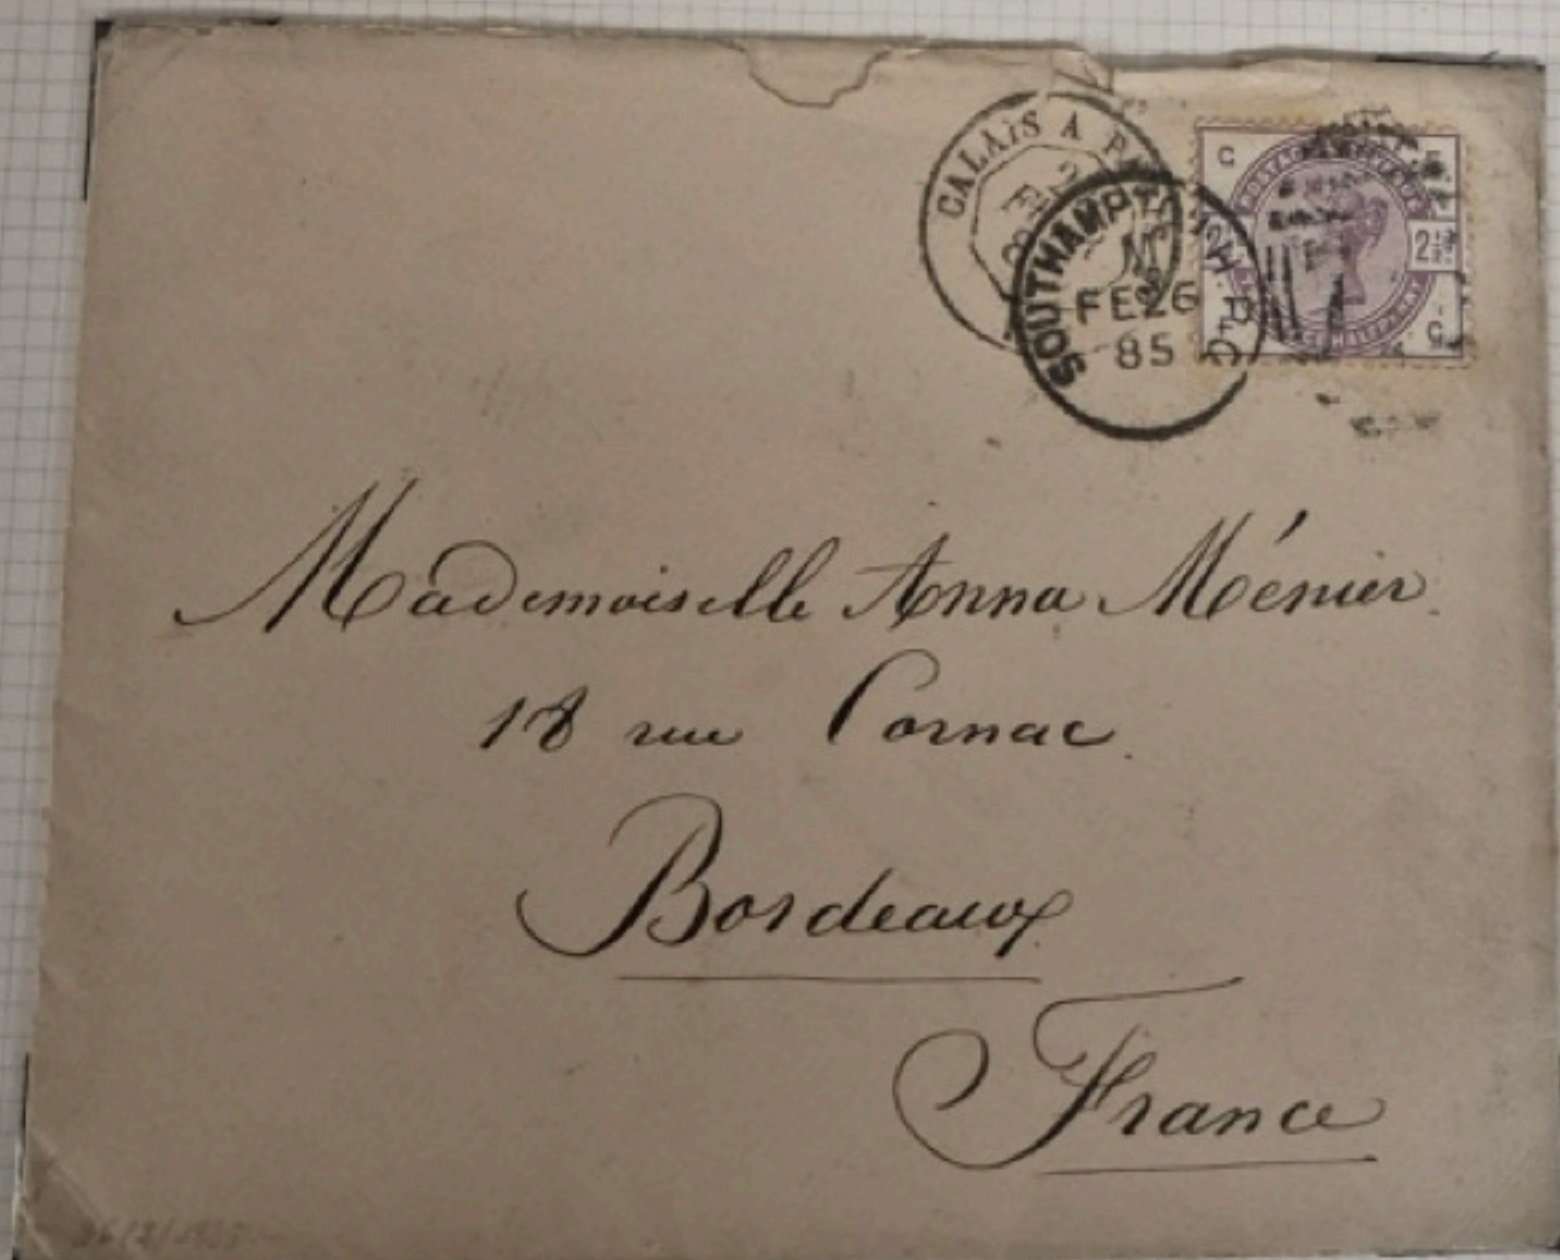 CALAIS A
SOUTHAMPTON
FE 26
85
C
2½
G
Mademoiselle Anna Ménier.
18 rue Cornac.
Bordeaux
France